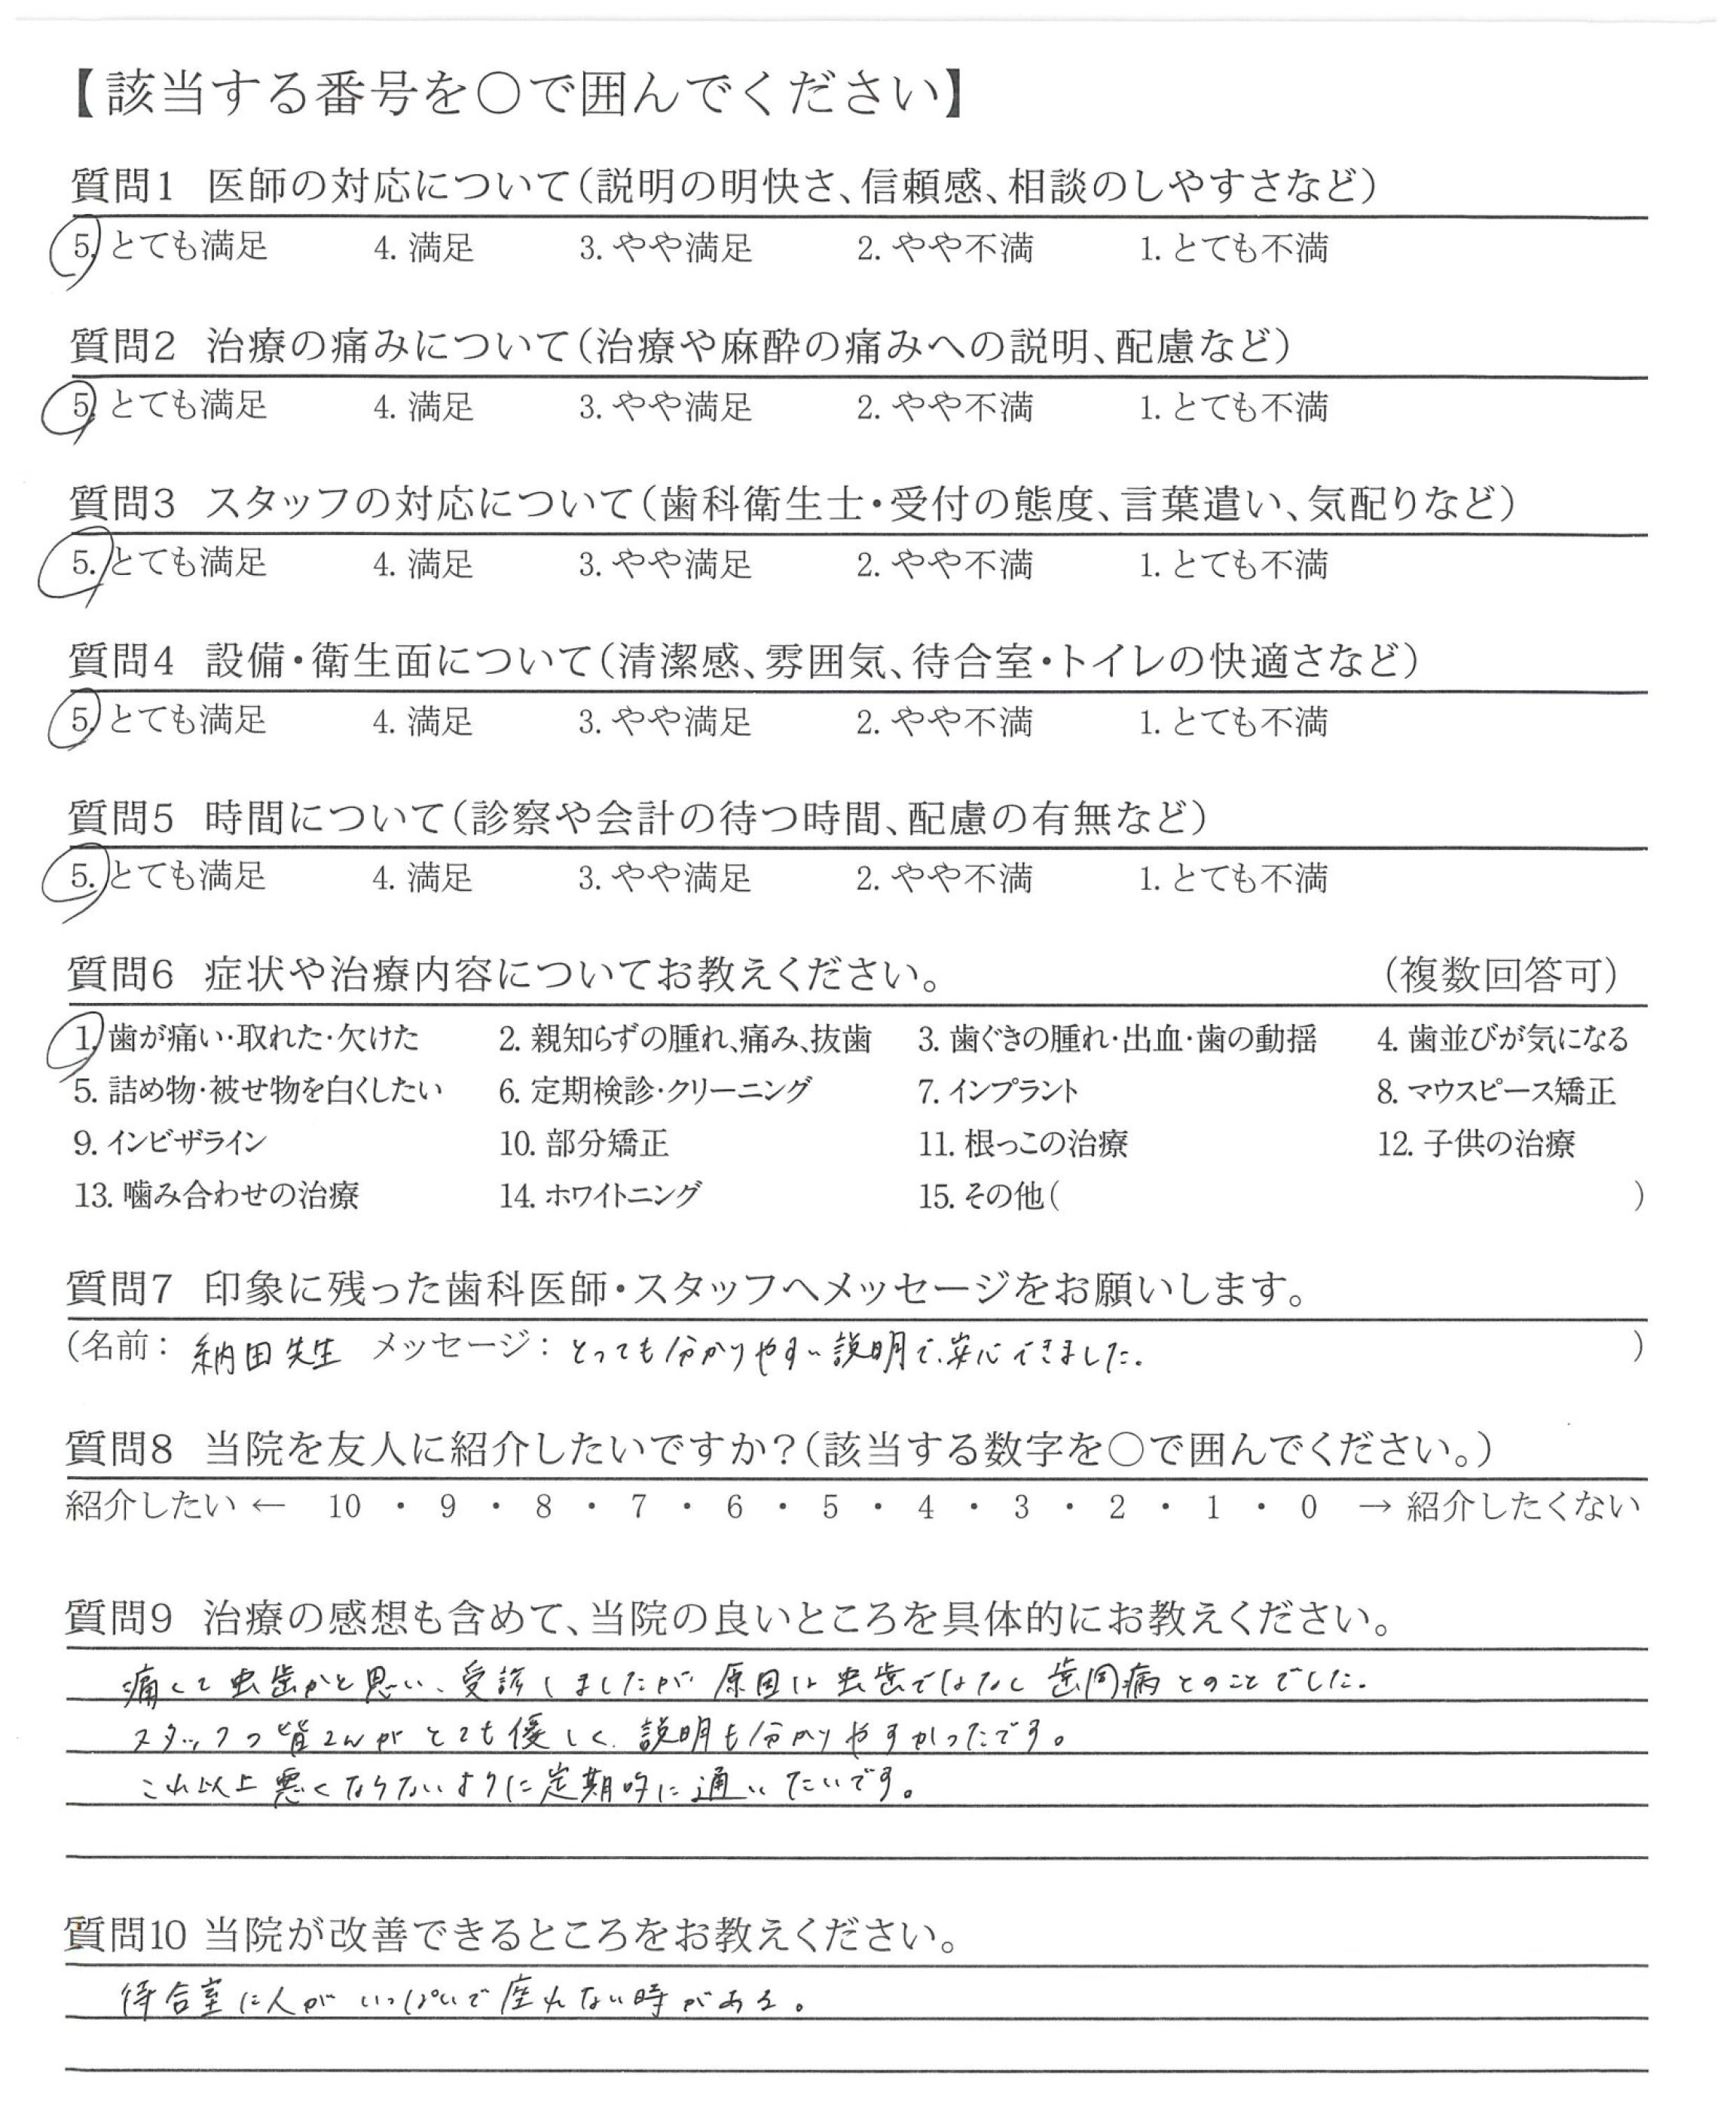 【該当する番号を○で囲んでください】
質問1 医師の対応について(説明の明快さ、信頼感、相談のしやすさなど)
5. とても満足 4. 満足 3. やや満足 2. やや不満 1. とても不満
質問2 治療の痛みについて(治療や麻酔の痛みへの説明、配慮など)
5. とても満足 4. 満足 3. やや満足 2. やや不満 1. とても不満
質問3 スタッフの対応について(歯科衛生士・受付の態度、言葉遣い、気配りなど)
5. とても満足 4. 満足 3. やや満足 2. やや不満 1. とても不満
質問4 設備・衛生面について(清潔感、雰囲気、待合室・トイレの快適さなど)
5. とても満足 4. 満足 3. やや満足 2. やや不満 1. とても不満
質問5 時間について(診察や会計の待つ時間、配慮の有無など)
5. とても満足 4. 満足 3. やや満足 2. やや不満 1. とても不満
質問6 症状や治療内容についてお教えください。 (複数回答可)
1. 歯が痛い・取れた・欠けた 2. 親知らずの腫れ、痛み、抜歯 3. 歯ぐきの腫れ・出血・歯の動揺 4. 歯並びが気になる
5. 詰め物・被せ物を白くしたい 6. 定期検診・クリーニング 7. インプラント 8. マウスピース矯正
9. インビザライン 10. 部分矯正 11. 根っこの治療 12. 子供の治療
13. 噛み合わせの治療 14. ホワイトニング 15. その他( )
質問7 印象に残った歯科医師・スタッフへメッセージをお願いします。
(名前: 納田先生 メッセージ: とっても分かりやすい説明で、安心できました。 )
質問8 当院を友人に紹介したいですか?(該当する数字を○で囲んでください。)
紹介したい ← 10 ・ 9 ・ 8 ・ 7 ・ 6 ・ 5 ・ 4 ・ 3 ・ 2 ・ 1 ・ 0 → 紹介したくない
質問9 治療の感想も含めて、当院の良いところを具体的にお教えください。
痛くて虫歯かと思い、受診しましたが原因は虫歯ではなく歯周病とのことでした。
スタッフの皆さんがとても優しく、説明も分かりやすかったです。
これ以上悪くならないように定期的に通いたいです。
質問10 当院が改善できるところをお教えください。
待合室に人がいっぱいで座れない時がある。